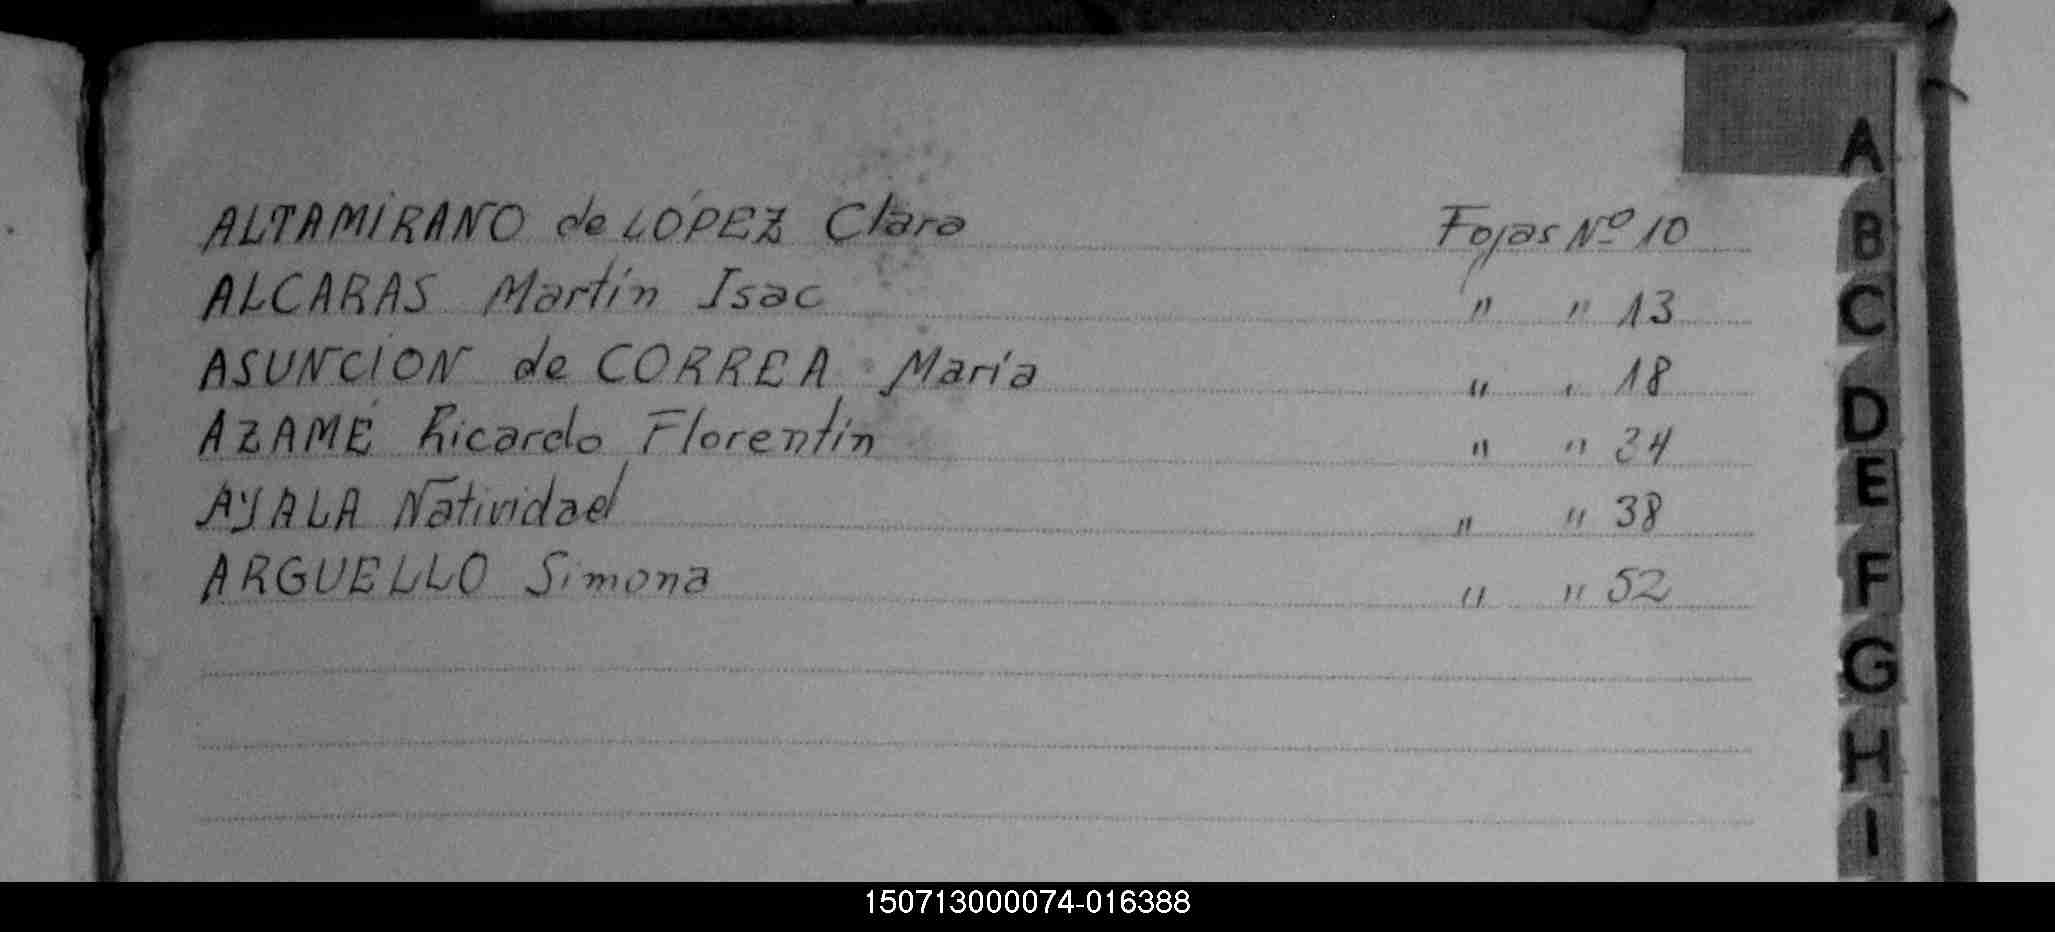 ALTAMIRANO de LÓPEZ Clara Fojas Nº 10
ALCARAS Martín Isac " " 13
ASUNCION de CORREA María " " 18
AZAMÉ Ricardo Florentín " " 34
AYALA Natividad " " 38
ARGUELLO Simona " " 52
A
B
C
D
E
F
G
H
I
150713000074-016388